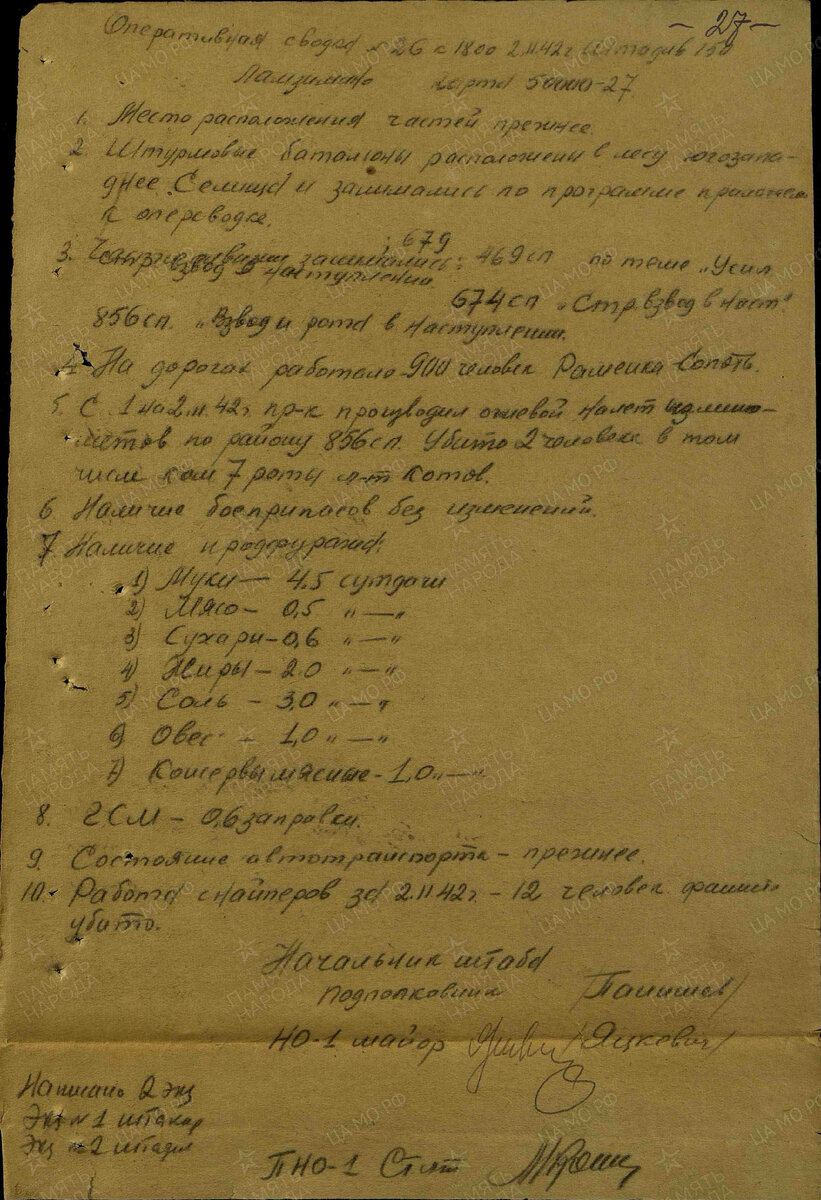 - 27 -
Оперативная сводка № 26 к 1800 2.11.42г. Штадив 150
Ламзимино карта 50000-27
1. Место расположения частей прежнее.
2. Штурмовые батальоны расположены в лесу югозапа-
днее Селища и занимались по программе приложен
к оперсводке.
3. занимались: 469 сп по теме „Усил
взвод в наступлении
674 сп „Стр. взвод в наст"
856 сп. „Взвод и рота в наступлении.
4. На дорогах работало 900 человек Раменка-Сопоть.
5. С 1 на 2.11.42г. пр-к производил огневой налет из мино-
метов по району 856 сп. Убито 2 человека в том
числе ком 7 роты л-т Котов.
6 Наличие боеприпасов без изменений.
7 Наличие продфуража:
1) Муки — 4,5 сутдачи
2) Мясо — 0,5 "—"
3) Сухари — 0,6 "—"
4) Жиры — 2.0 "—"
5) Соль — 3,0 "—"
6) Овес — 1,0 "—"
7) Консервы мясные — 1,0 "—"
8. ГСМ — 0,6 заправки.
9. Состояние автотранспорта — прежнее.
10. Работа снайперов за 2.11.42г. — 12 человек фашист
убито.
Начальник штаба
Подполковник
НО-1 майор /Яцкевич/
Написано 2 экз
Экз № 1 штакор
Экз № 2 штадив
ПНО-1 Ст л-т
ПАМЯТЬ НАРОДА
ЦА МО РФ